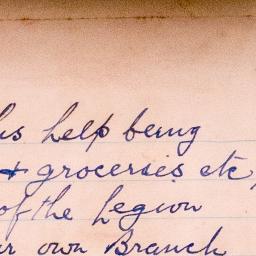 his help being
+ groceries etc,
of the Legion
ur own Branch